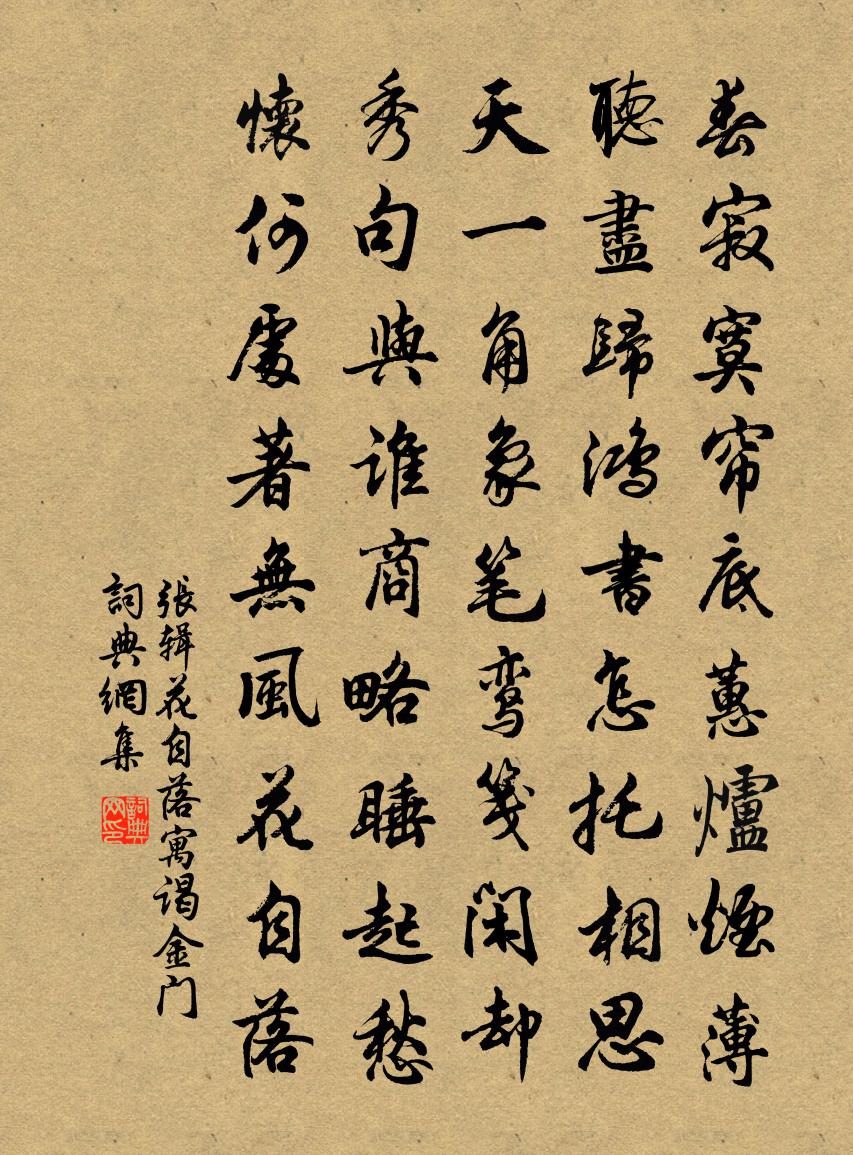 春寂寞帘底蕙爐煙薄
聽盡歸鴻書怎托相思
天一角象笔鸾箋閑却
秀句與誰商略睡起愁
懷何處著無風花自落
張辑花自落寓谒金门
詞典網集
詞典网印